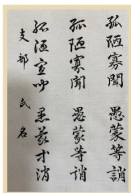 孤陋寡聞　愚蒙等誚
孤陋寡聞　愚蒙等誚
孤陋寡聞　愚蒙等誚
支部　氏名